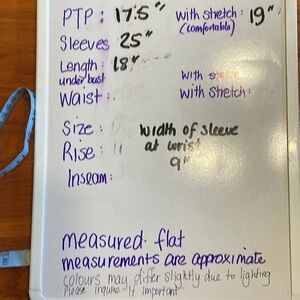 PTP : 17.5" with stretch : 19"
(comfortable)
Sleeves 25"
Length : 18"
under bust with
Waist : with stretch :
Size : width of sleeve
Rise : at wrist
9"
Inseam :
measured flat
measurements are approximate
colours may differ slightly due to lighting
Please inquire if important